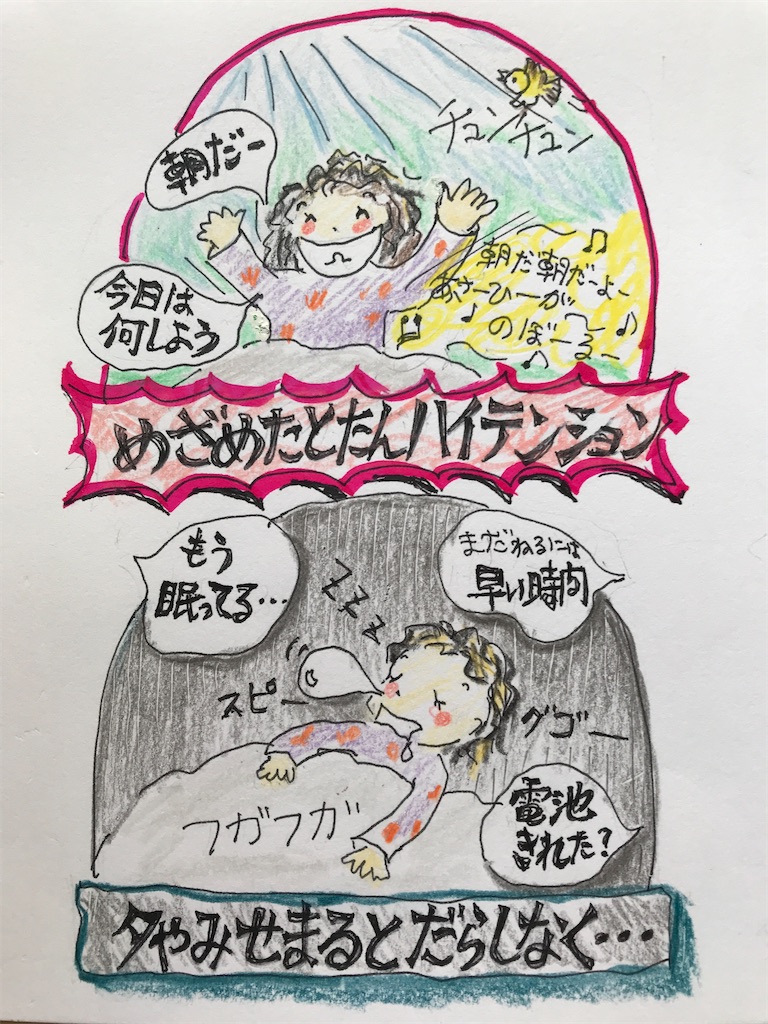 チュンチュン
朝だー
今日は
何しよう
朝だ朝だーよー
あさーひーが
のぼーるー
めざめたとたんハイテンション
もう
眠ってる…
まだねるには
早い時間
ZZZ
スピー
グゴー
フガフガ
電池
きれた?
夕やみせまるとだらしなく…